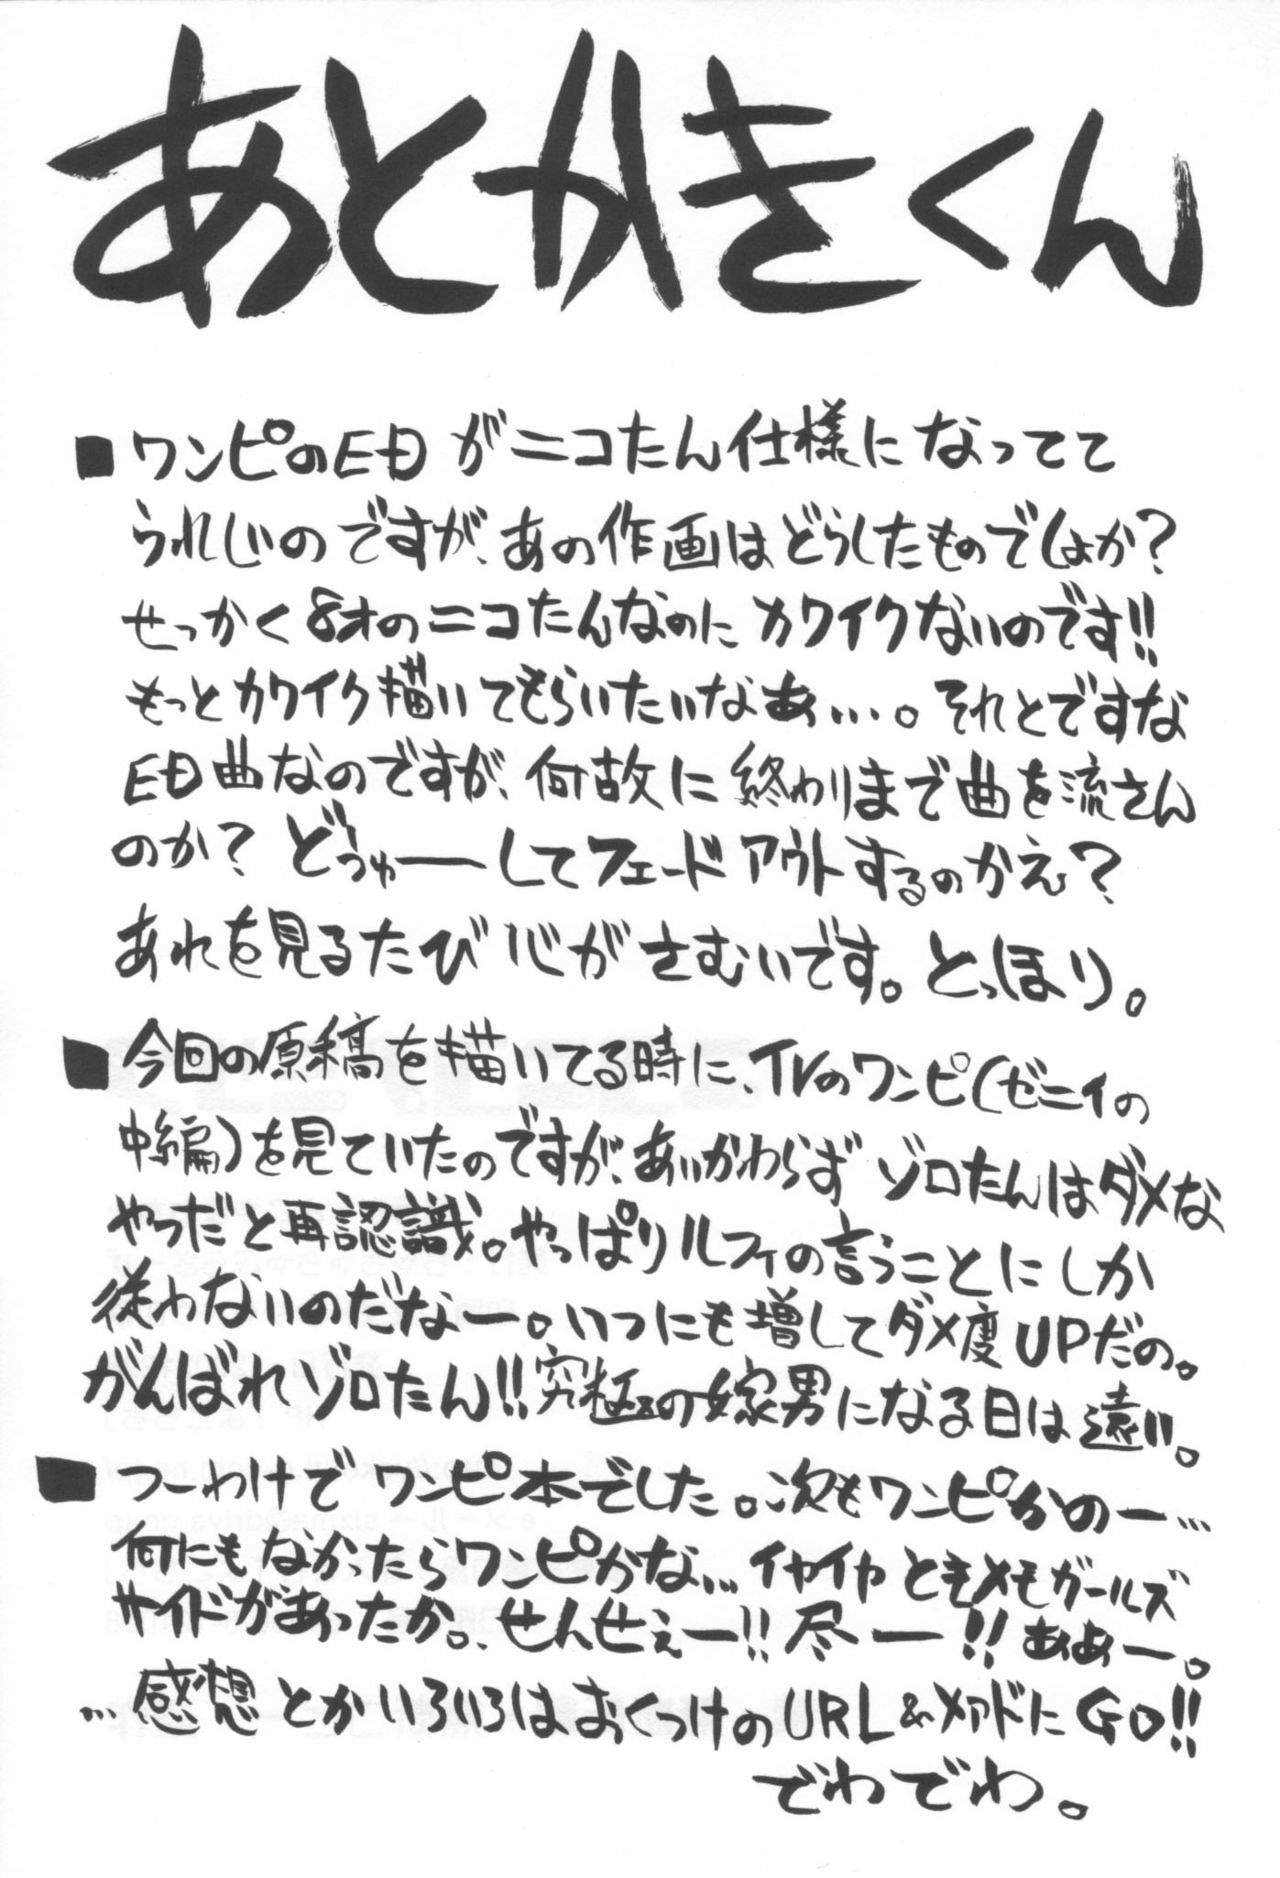 あとかきくん
■ワンピのEDがニコたん仕様になってて
うれじいのですが、あの作画はどうしたものでしょか？
せっかく8才のニコたんなのにカワイクないのです!!
もっとカワイク描いてもらいたいなあ…。それとですな
ED曲なのですが、何故に終わりまで曲を流さん
のか？どうゅーしてフェードアウトするのかえ？
あれを見るたび心がさむいです。とっほり。
■今回の原稿を描いてる時に、TVのワンピ(ゼニイの
中編)を見ていたのですが、あいかわらずゾロたんはダメな
やつだと再認識。やっぱりルフィの言うことにしか
従わないのだなー。いつにも増してダメ度UPだの。
がんばれゾロたん!!究極の嫁男になる日は遠い。
■つーわけでワンピ本でした。次もワンピかのー…
何にもなかったらワンピかな…イヤイヤときメモガールズ
サイドがあったか。せんせぇー!!尽ー!!ああー。
…感想とかいろいろはおくつけのURL&メアドにGO!!
でわでわ。